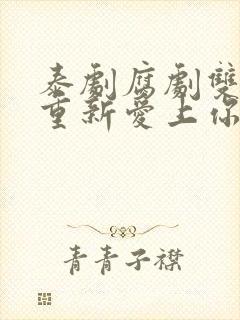 泰劇腐劇雙
重新愛上你
青青子襟